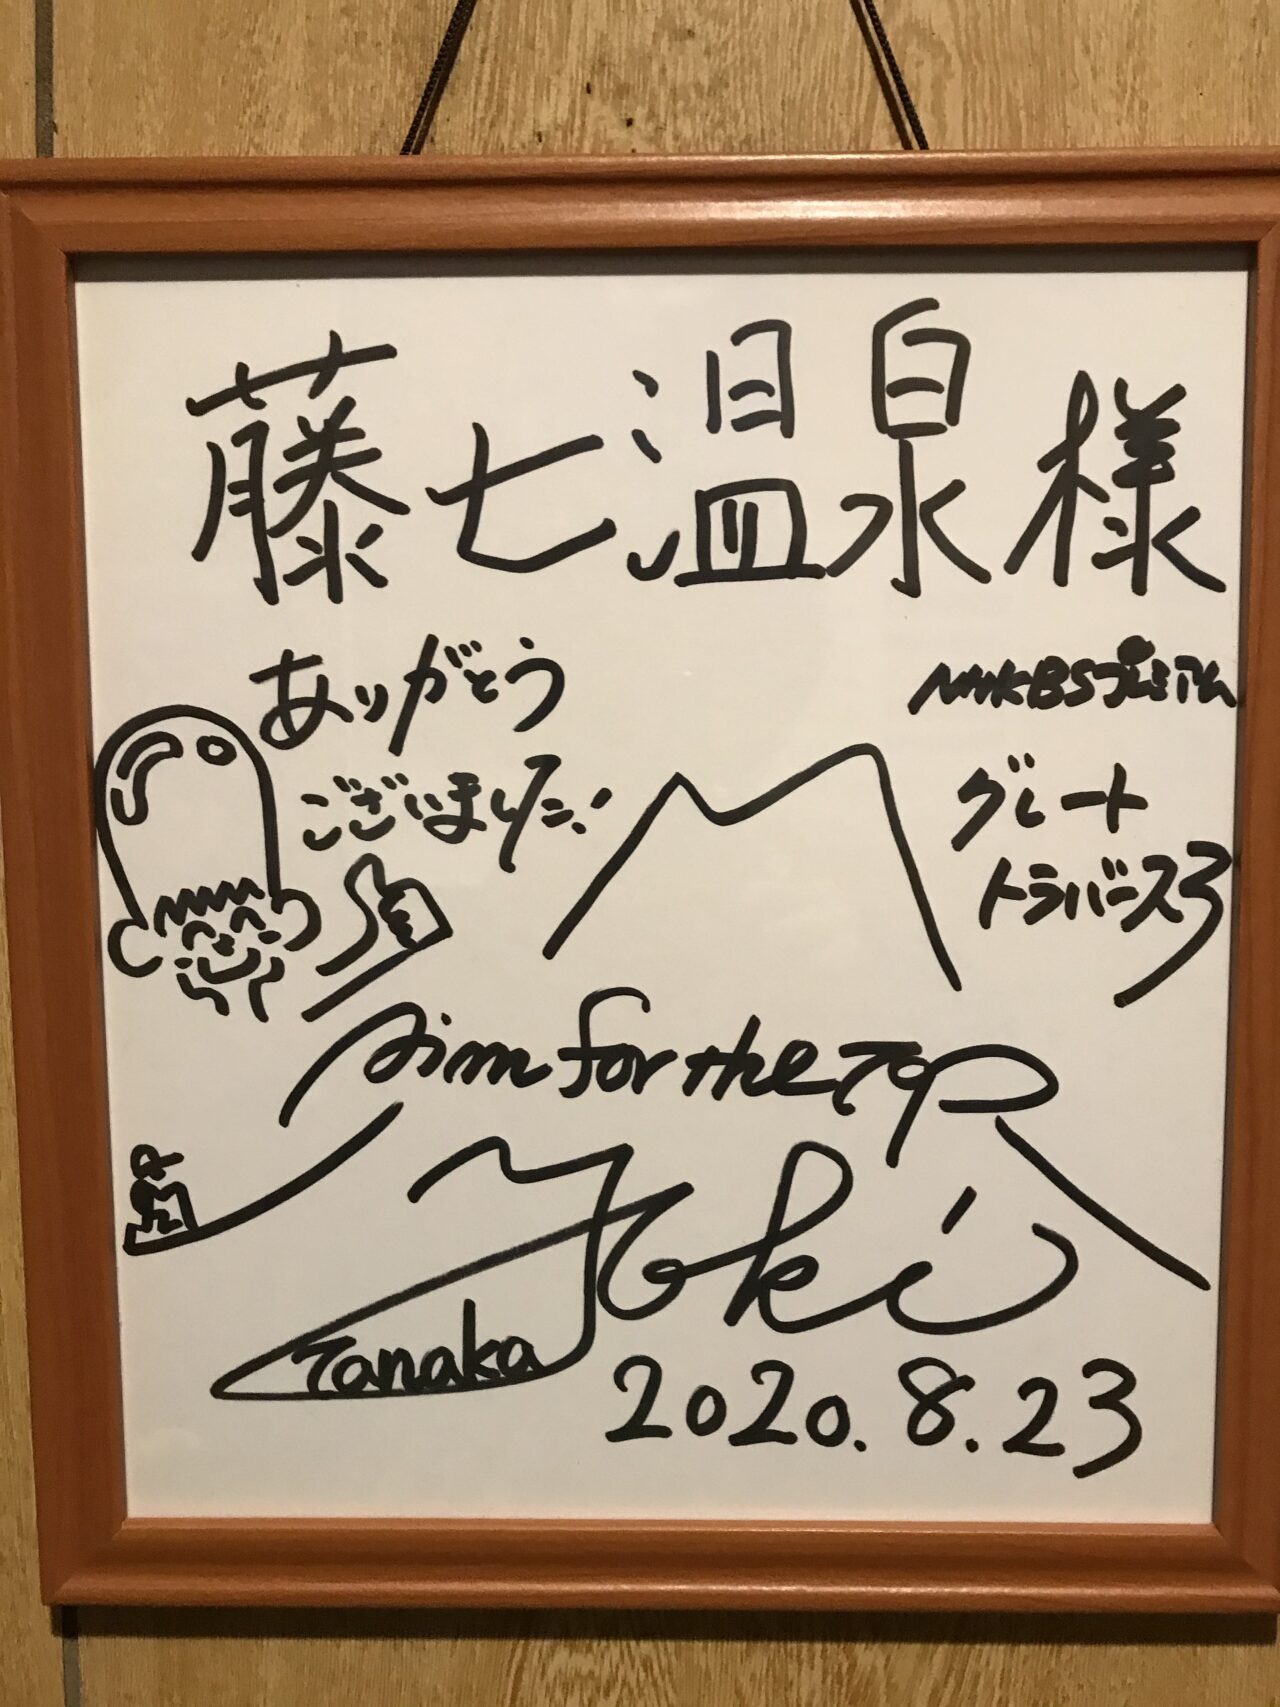 藤七温泉様
ありがとう
ございました!
NHKBSプレミアム
グレート
トラバース3
Aim for the Top
Yoki
Tanaka
2020.8.23